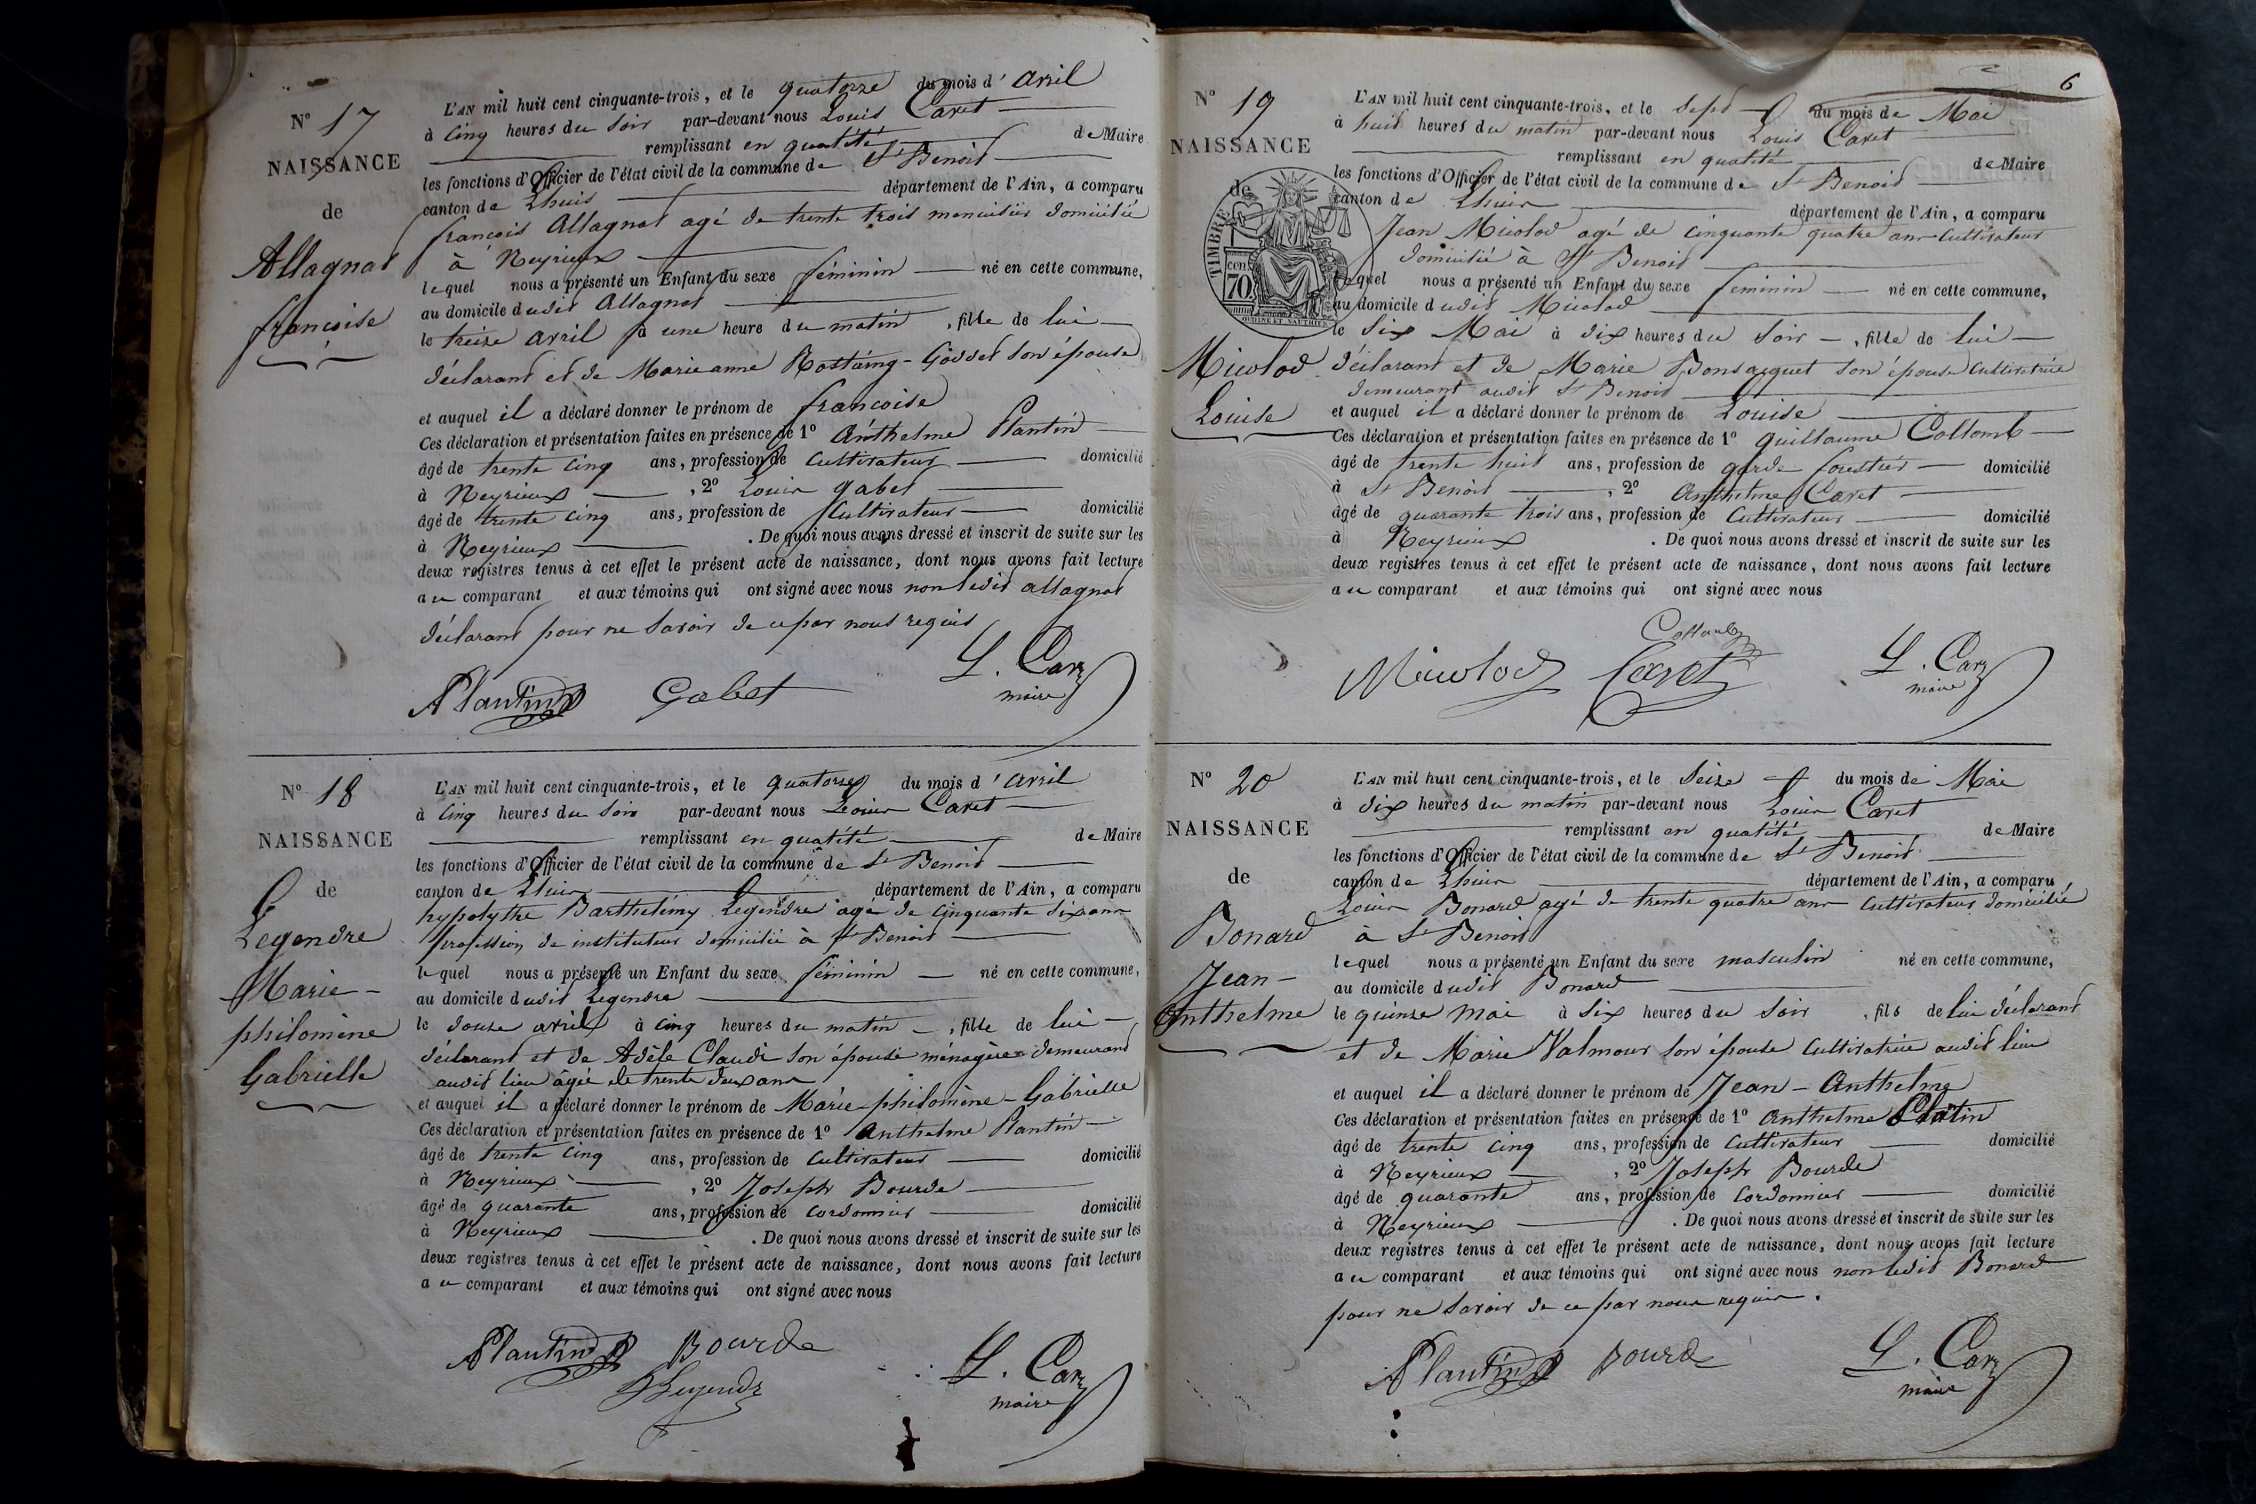 N° 17
NAISSANCE
de
Allagnat
françoise
L'AN mil huit cent cinquante-trois, et le quatorze du mois d'avril
à cinq heures du soir par-devant nous Louis Caret
remplissant en qualité de Maire
les fonctions d'Officier de l'état civil de la commune de St Benoit
canton de Lhuis département de l'Ain, a comparu
françois Allagnat agé de trente trois menuisier domicilié
à Neyrieux
lequel nous a présenté un Enfant du sexe féminin né en cette commune,
au domicile dudit Allagnat
le treize avril à une heure du matin, fille de lui
déclarant et de Marieanne Rostaing-Goddet son épouse
et auquel il a déclaré donner le prénom de francoise
Ces déclaration et présentation faites en présence de 1° Anthelme Plantin
âgé de trente cinq ans, profession de cultivateur domicilié
à Neyrieux, 2° Louis gabet
âgé de trente cinq ans, profession de Cultivateur domicilié
à Neyrieux. De quoi nous avons dressé et inscrit de suite sur les
deux registres tenus à cet effet le présent acte de naissance, dont nous avons fait lecture
au comparant et aux témoins qui ont signé avec nous non ledit allagnat
déclarant pour ne savoir de ce par nous requis
APlantin Gabet L. Caret
maire
N° 18
NAISSANCE
de
Legendre
Marie-
philomène
Gabrielle
L'AN mil huit cent cinquante-trois, et le quatorze du mois d'avril
à cinq heures du soir par-devant nous Louis Caret
remplissant en qualité de Maire
les fonctions d'Officier de l'état civil de la commune de St Benoit
canton de Lhuis département de l'Ain, a comparu
hypolythe Barthelémy Legendre agé de cinquante dix ans
profession de instituteur domicilié à St Benoit
lequel nous a présenté un Enfant du sexe féminin né en cette commune,
au domicile dudit Legendre
le douze avril à cinq heures du matin, fille de lui
déclarant et de Adèle Claudi son épouse ménagère demeurant
audit lieu âgée de trente deux ans
et auquel il a déclaré donner le prénom de Marie-philomène-Gabrielle
Ces déclaration et présentation faites en présence de 1° Anthelme Plantin
âgé de trente cinq ans, profession de cultivateur domicilié
à Neyrieux, 2° Joseph Bourde
âgé de quarante ans, profession de cordonnier domicilié
à Neyrieux. De quoi nous avons dressé et inscrit de suite sur les
deux registres tenus à cet effet le présent acte de naissance, dont nous avons fait lecture
au comparant et aux témoins qui ont signé avec nous
APlantin Bourde L. Caret
Legendre maire
6
N° 19
NAISSANCE
de
TIMBRE
CEN.
70
Micolod
Louise
L'AN mil huit cent cinquante-trois, et le sept du mois de Mai
à huit heures du matin par-devant nous Louis Caret
remplissant en qualité de Maire
les fonctions d'Officier de l'état civil de la commune de St Benoit
canton de Lhuis département de l'Ain, a comparu
Jean Micolod agé de cinquante quatre ans cultivateur
domicilié à St Benoit
lequel nous a présenté un Enfant du sexe feminin né en cette commune,
au domicile dudit Micolod
le six Mai à dix heures du soir, fille de lui
déclarant et de Marie Bonsacquet son épouse cultivatrice
demeurant audit St Benoit
et auquel il a déclaré donner le prénom de Louise
Ces déclaration et présentation faites en présence de 1° guillaume Collomb
âgé de trente huit ans, profession de garde forestier domicilié
à St Benoit, 2° Anthelme Caret
âgé de quarante trois ans, profession de Cultivateur domicilié
à Neyrieux. De quoi nous avons dressé et inscrit de suite sur les
deux registres tenus à cet effet le présent acte de naissance, dont nous avons fait lecture
au comparant et aux témoins qui ont signé avec nous
Collomb
Micolod Caret L. Caret
maire
N° 20
NAISSANCE
de
Bonard
Jean-
Anthelme
L'AN mil huit cent cinquante-trois, et le seize du mois de Mai
à dix heures du matin par-devant nous Louis Caret
remplissant en qualité de Maire
les fonctions d'Officier de l'état civil de la commune de St Benoit
canton de Lhuis département de l'Ain, a comparu
Louis Bonard agé de trente quatre ans cultivateur domicilié
à St Benoit
lequel nous a présenté un Enfant du sexe masculin né en cette commune,
au domicile dudit Bonard
le quinze mai à six heures du soir, fils de lui déclarant
et de Marie Valmour son épouse Cultivatrice audit lieu
et auquel il a déclaré donner le prénom de Jean-Anthelme
Ces déclaration et présentation faites en présence de 1° Anthelme Platin
âgé de trente cinq ans, profession de Cultivateur domicilié
à Neyrieux, 2° Joseph Bourde
âgé de quarante ans, profession de cordonnier domicilié
à Neyrieux. De quoi nous avons dressé et inscrit de suite sur les
deux registres tenus à cet effet le présent acte de naissance, dont nous avons fait lecture
au comparant et aux témoins qui ont signé avec nous non ledit Bonard
pour ne savoir de ce par nous requis.
APlantin Bourde L. Caret
maire